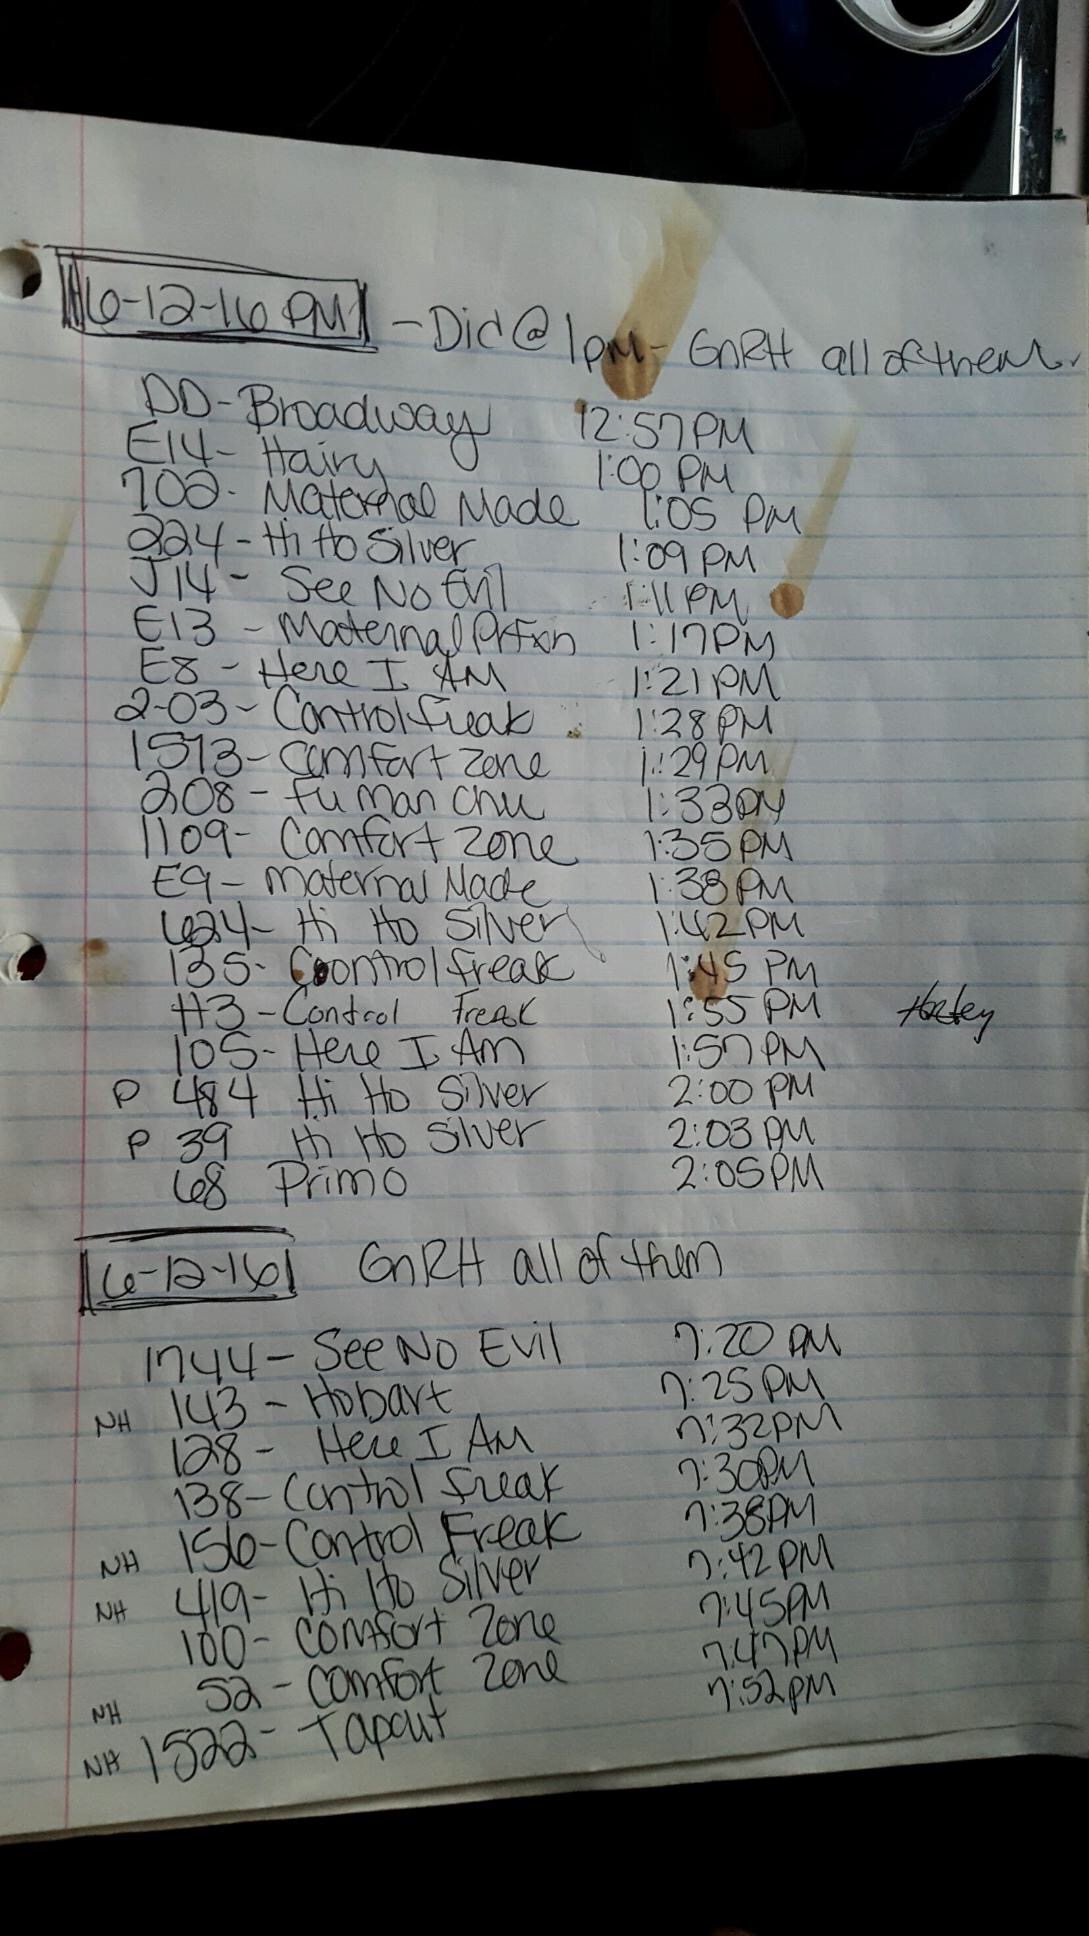 6-12-16 PM - Did @ 1pm - GnRH all of them
DD- Broadway 12:57 PM
E14- Hairy 1:00 PM
702- Maternal Made 1:05 PM
224- Hi Ho Silver 1:09 PM
J14- See No Evil 1:11 PM
E13- Maternal Prfxn 1:17 PM
E8- Here I AM 1:21 PM
2-03- Control freak 1:28 PM
1573- Comfort zone 1:29 PM
208- fu man chu 1:33 PM
1109- Comfort zone 1:35 PM
E9- Maternal Made 1:38 PM
624- Hi Ho Silver 1:42 PM
135- Coontrol freak 1:45 PM
H3- Control Freak 1:55 PM
105- Here I Am 1:57 PM
P 484 Hi Ho Silver 2:00 PM
P 39 Hi Ho Silver 2:03 PM
68 Primo 2:05 PM
6-12-16 GnRH all of them
1744- See No Evil 7:20 PM
NH 143- Hobart 7:25 PM
128- Here I Am 7:32 PM
138- Control freak 7:30 PM
NH 156- Control Freak 7:38 PM
NH 419- Hi Ho Silver 7:42 PM
100- Comfort Zone 7:45 PM
NH 52- Comfort Zone 7:47 PM
NH 1522- Tapout 7:52 PM